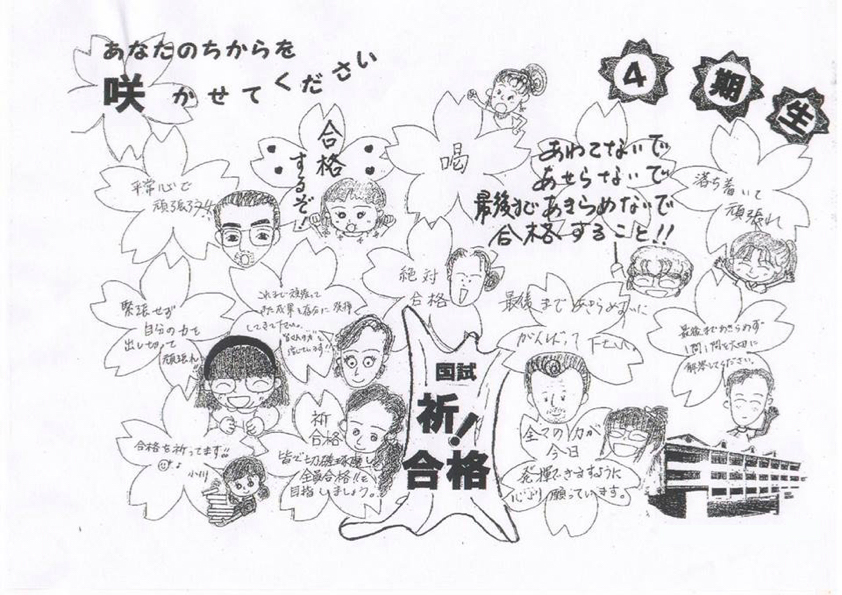 あなたのちからを
咲かせてください
4期生
喝
合格
するぞ!
あわてないで
あせらないで
最後まであきらめないで
合格すること!!
平常心で
落ち着いて
頑張れ
絶対
合格
緊張せず
自分の力を
出し切って
これまで頑張って
最後まであきらめずに
がんばって下さい
最後まであきらめず
1問1問を大切に
解答してください。
国試
祈!
合格
合格を祈ってます!!
小川
祈
合格
皆で切磋琢磨し
全員合格!!を
目指しましょう。
全ての力が
今日
発揮できますように
心より願っています。